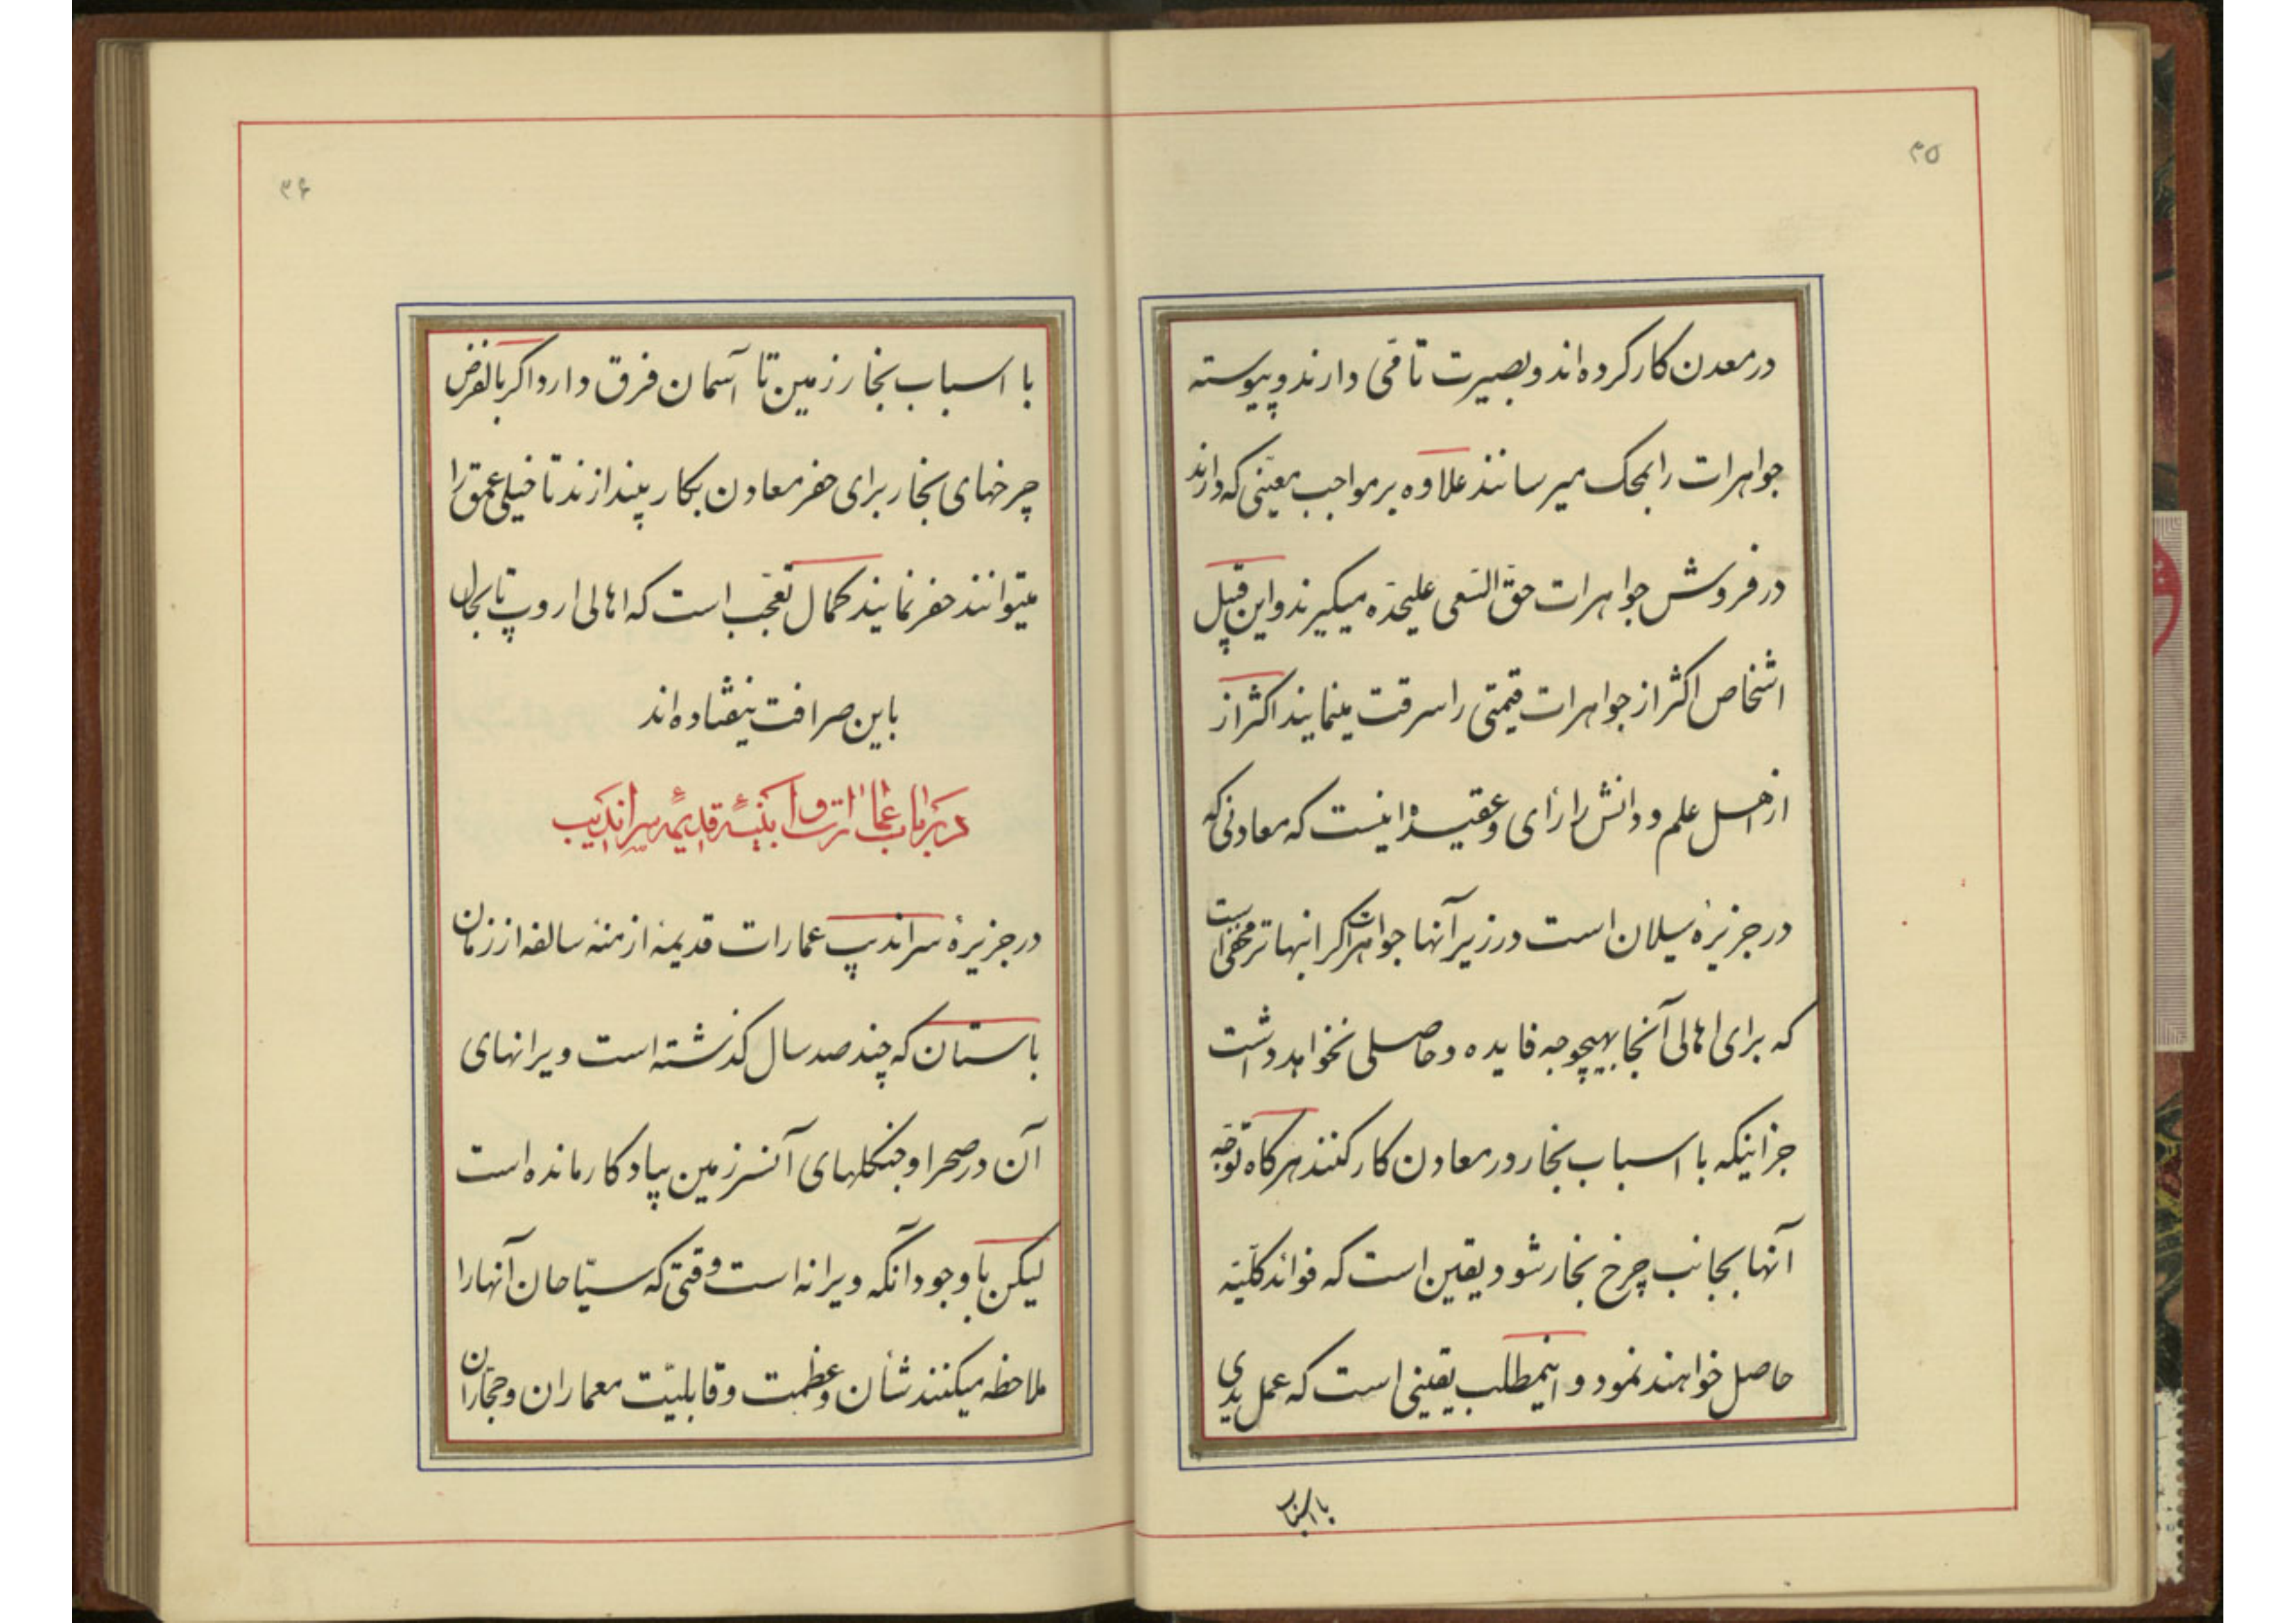 ۳۵
در معدن کار کرده اند و بصیرت تامّی دارند و پیوسته
جواهرات را بمحک میرسانند علاوه بر مواجب معیّنی که دارند
در فروش جواهرات حقّ السّعی علیحدّه میکیرند و این قبیل
اشخاص اکثر از جواهرات قیمتی را سرقت مینمایند اکثر از
از اهل علم و دانش را رأی و عقیدۀ اینست که معادنی که
در جزیرۀ سیلان است در زیر آنها جواهرات کرانبهاتر مخفی است
که برای اهالی آنجا بهیچوجه فایده و حاصلی نخواهد داشت
جز اینکه با اسباب بخار در معادن کار کنند هر کاه توجّه
آنها بجانب چرخ بخار شود یقین است که فوائد کلّیّه
حاصل خواهند نمود و اینمطلب یقینی است که عمل یدی
با اسباب
۳۶
با اسباب بخار ز زمین تا آسمان فرق دارد اکر بالفرض
چرخهای بخار برای حفر معادن بکار بیندازند تا خیلی عمق را
میتوانند حفر نمایند کمال تعجّب است که اهالی اروپ تا بحال
باین صرافت نیفتاده اند
در باب عمارات و ابنیۀ قدیمۀ سراندیب
در جزیرۀ سراندیپ عمارات قدیمۀ ازمنۀ سالفه از زمان
باستان که چند صد سال کذشته است ویرانهای
آن در صحرا و جنکلهای آنسرزمین بیادکار مانده است
لیکن با وجود آنکه ویرانه است وقتی که سیّاحان آنها را
ملاحظه میکنند شأن و عظمت و قابلیّت معماران و حجّاران